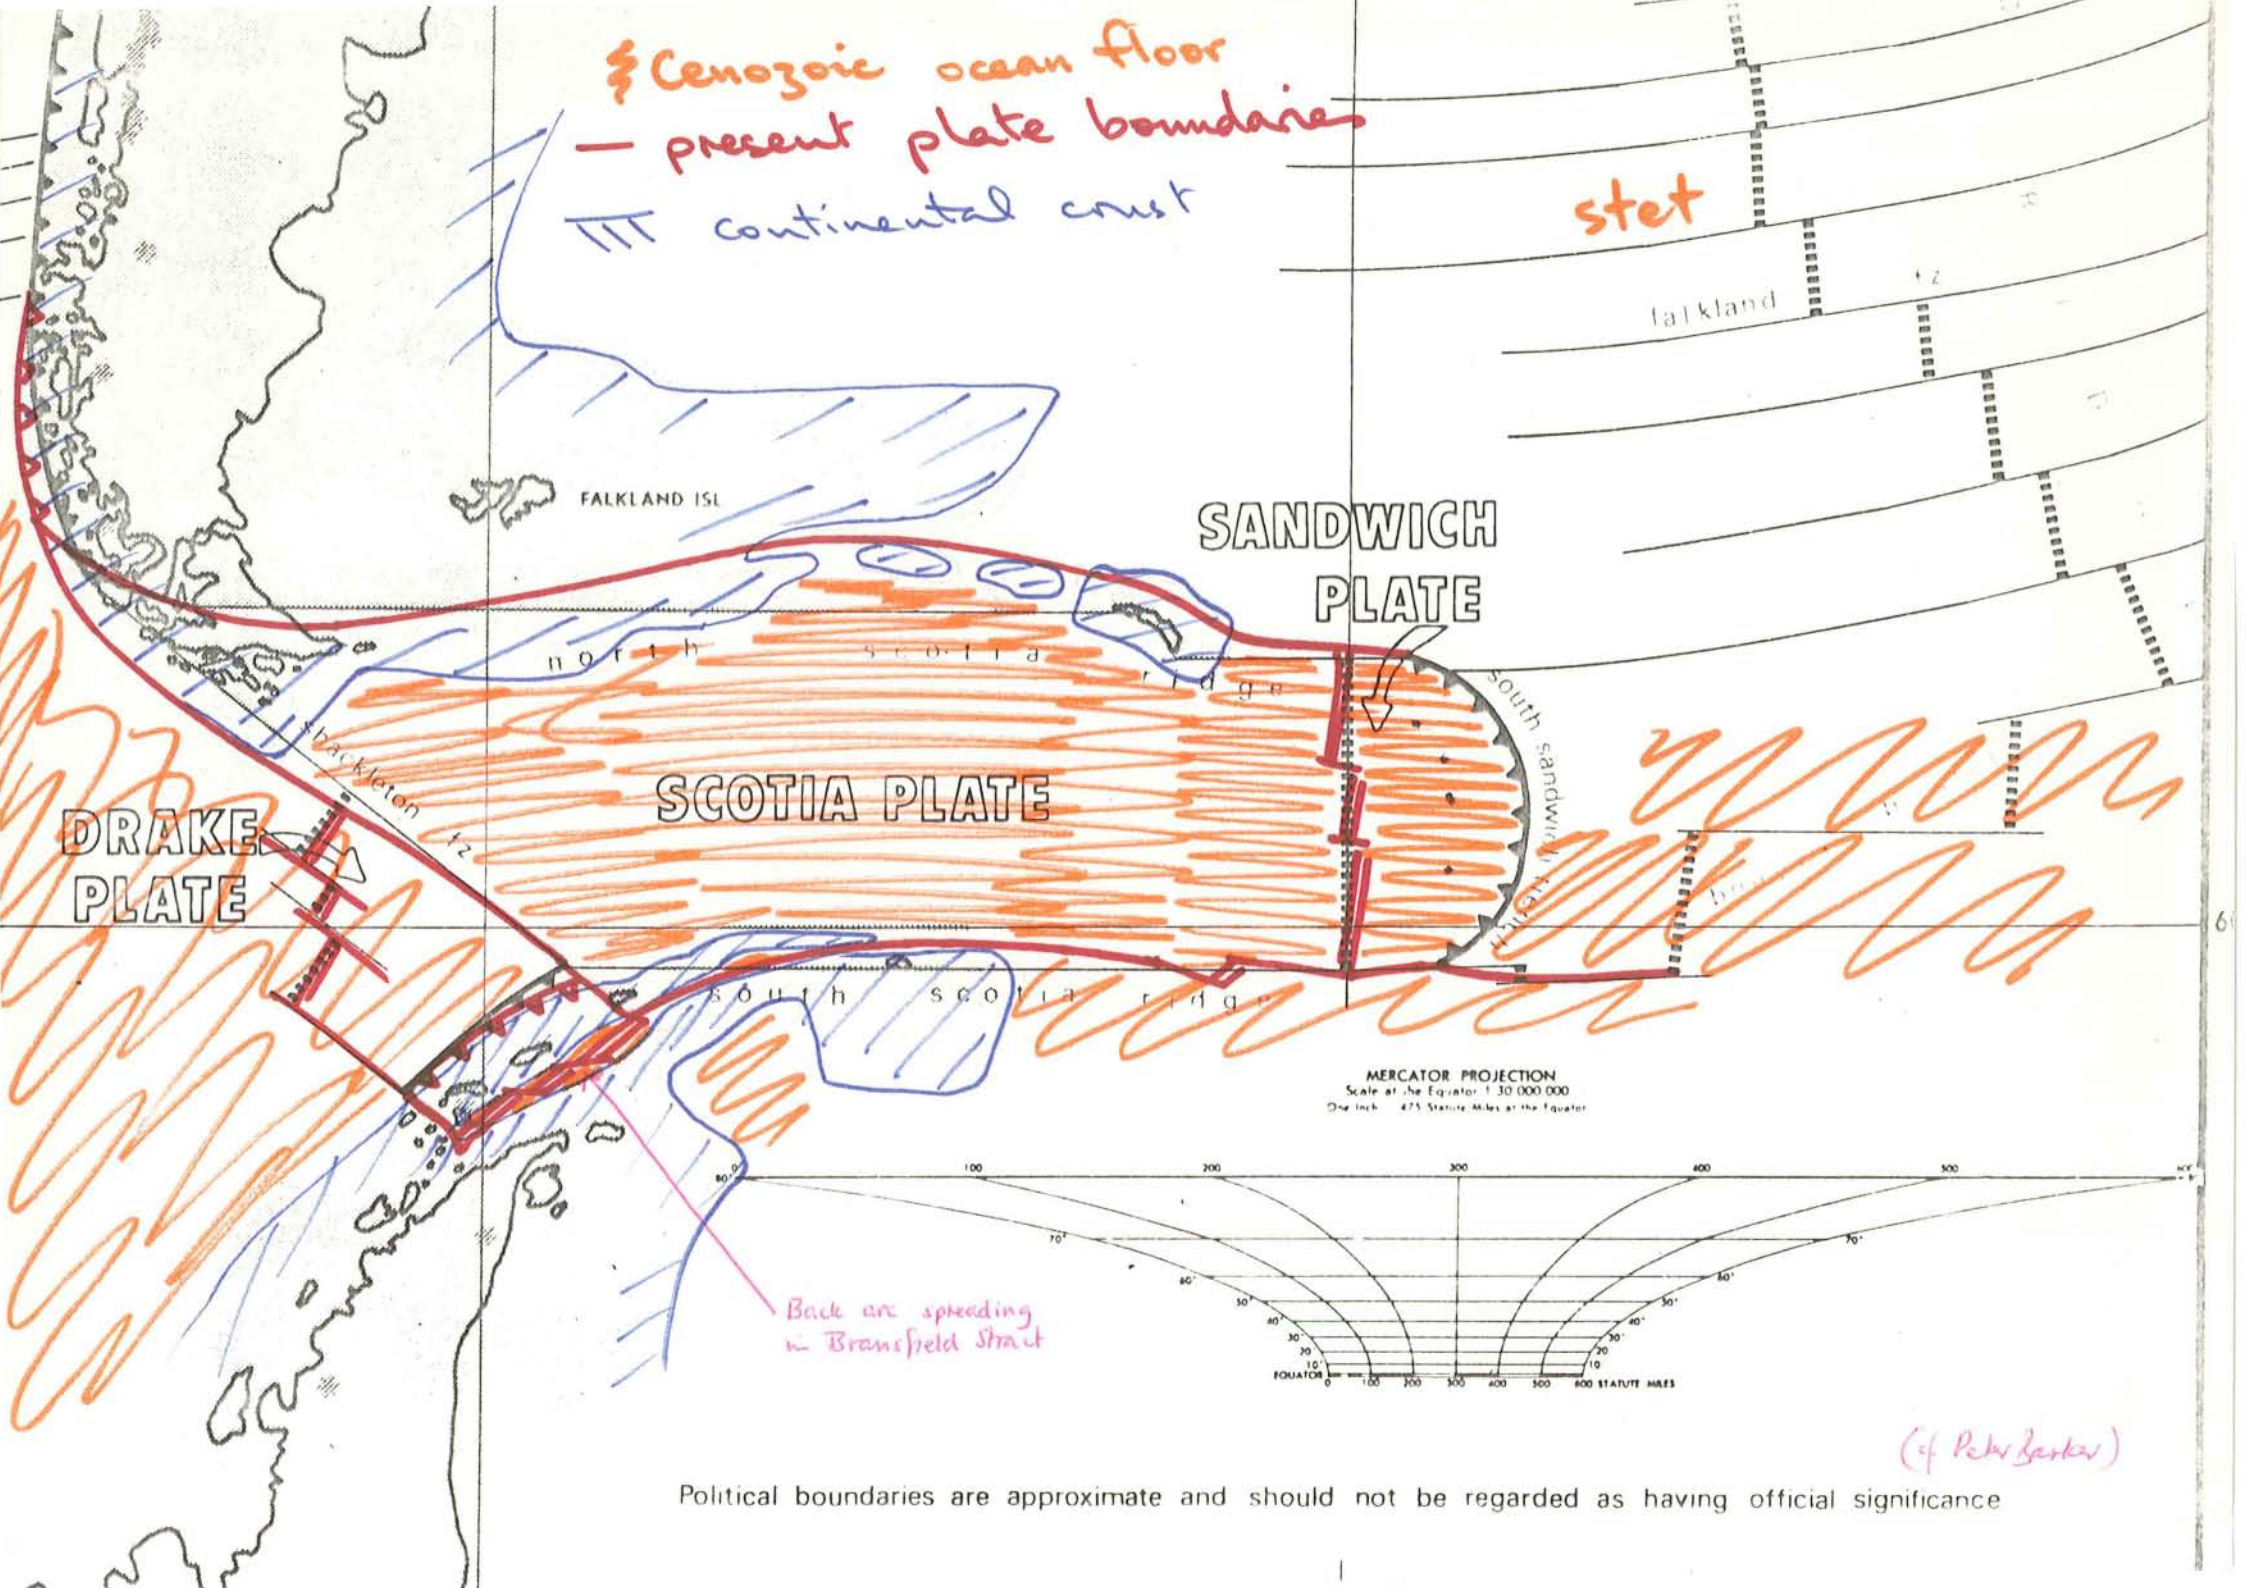 Cenozoic ocean floor
— present plate boundaries
continental crust
stet
falkland fz
FALKLAND ISL
SANDWICH
PLATE
north scotia ridge
south sandwich trench
shackleton fz
SCOTIA PLATE
DRAKE
PLATE
south scotia ridge
MERCATOR PROJECTION
Scale at the Equator 1 30 000 000
One Inch 475 Statute Miles at the Equator
0 100 200 300 400 500
80°
70° 70°
60° 60°
50° 50°
40° 40°
30 30
20 20
10 10
EQUATOR 0 100 200 300 400 500 600 STATUTE MILES
Back arc spreading
in Bransfield Strait
(cf Peter Barker)
Political boundaries are approximate and should not be regarded as having official significance